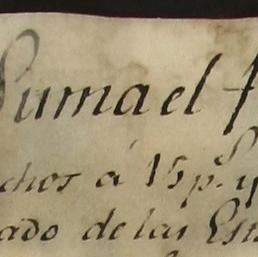 Suma el
chos á 15 p.s y
ado de las Est